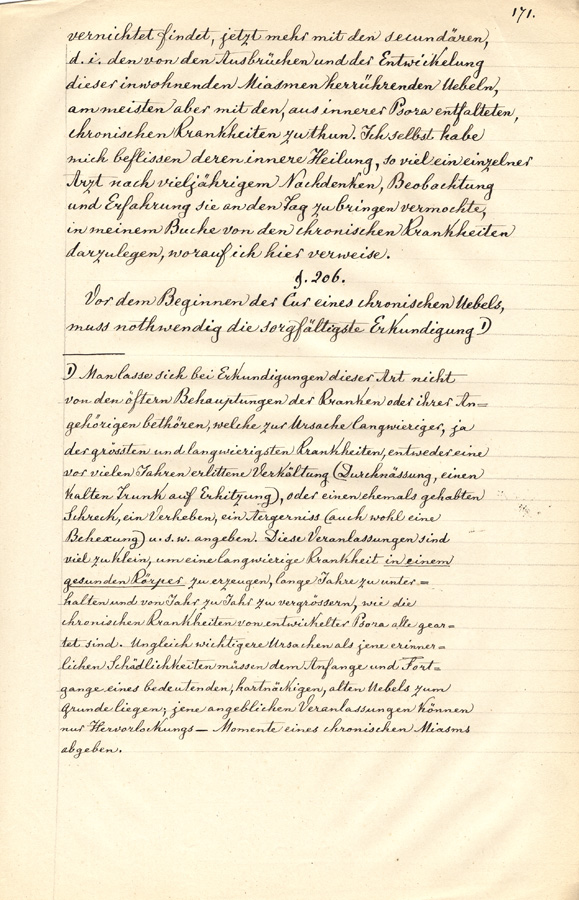 171.
vernichtet findet, jetzt mehr mit den secundären,
d. i. den von den Ausbrüchen und der Entwickelung
dieser inwohnenden Miasmen herrührenden Uebeln,
am meisten aber mit den, aus innerer Psora entfalteten,
chronischen Krankheiten zu thun. Ich selbst habe
mich beflissen deren innere Heilung, so viel ein einzelner
Arzt nach vieljährigem Nachdenken, Beobachtung
und Erfahrung sie an den Tag zu bringen vermochte,
in meinem Buche von den chronischen Krankheiten
darzulegen, worauf ich hier verweise.
§. 206.
Vor dem Beginnen der Cur eines chronischen Uebels,
muss nothwendig die sorgfältigste Erkundigung 1)
1) Man lasse sich bei Erkundigungen dieser Art nicht
von den öftern Behauptungen der Kranken oder ihrer An=
gehörigen bethören, welche zur Ursache langwieriger, ja
der grössten und langwierigsten Krankheiten, entweder eine
vor vielen Jahren erlittene Verkältung (Durchnässung, einen
kalten Trunk auf Erhitzung), oder einen ehemals gehabten
Schreck, ein Verheben, ein Aergerniss (auch wohl eine
Behexung) u. s. w. angeben. Diese Veranlassungen sind
viel zu klein, um eine langwierige Krankheit in einem
gesunden Körper zu erzeugen, lange Jahre zu unter=
halten und von Jahr zu Jahr zu vergrössern, wie die
chronischen Krankheiten von entwickelter Psora alle gear=
tet sind. Ungleich wichtigere Ursachen als jene erinner=
lichen Schädlichkeiten müssen dem Anfange und Fort=
gange eines bedeutenden, hartnäckigen, alten Uebels zum
Grunde liegen; jene angeblichen Veranlassungen können
nur Hervorlockungs — Momente eines chronischen Miasms
abgeben.